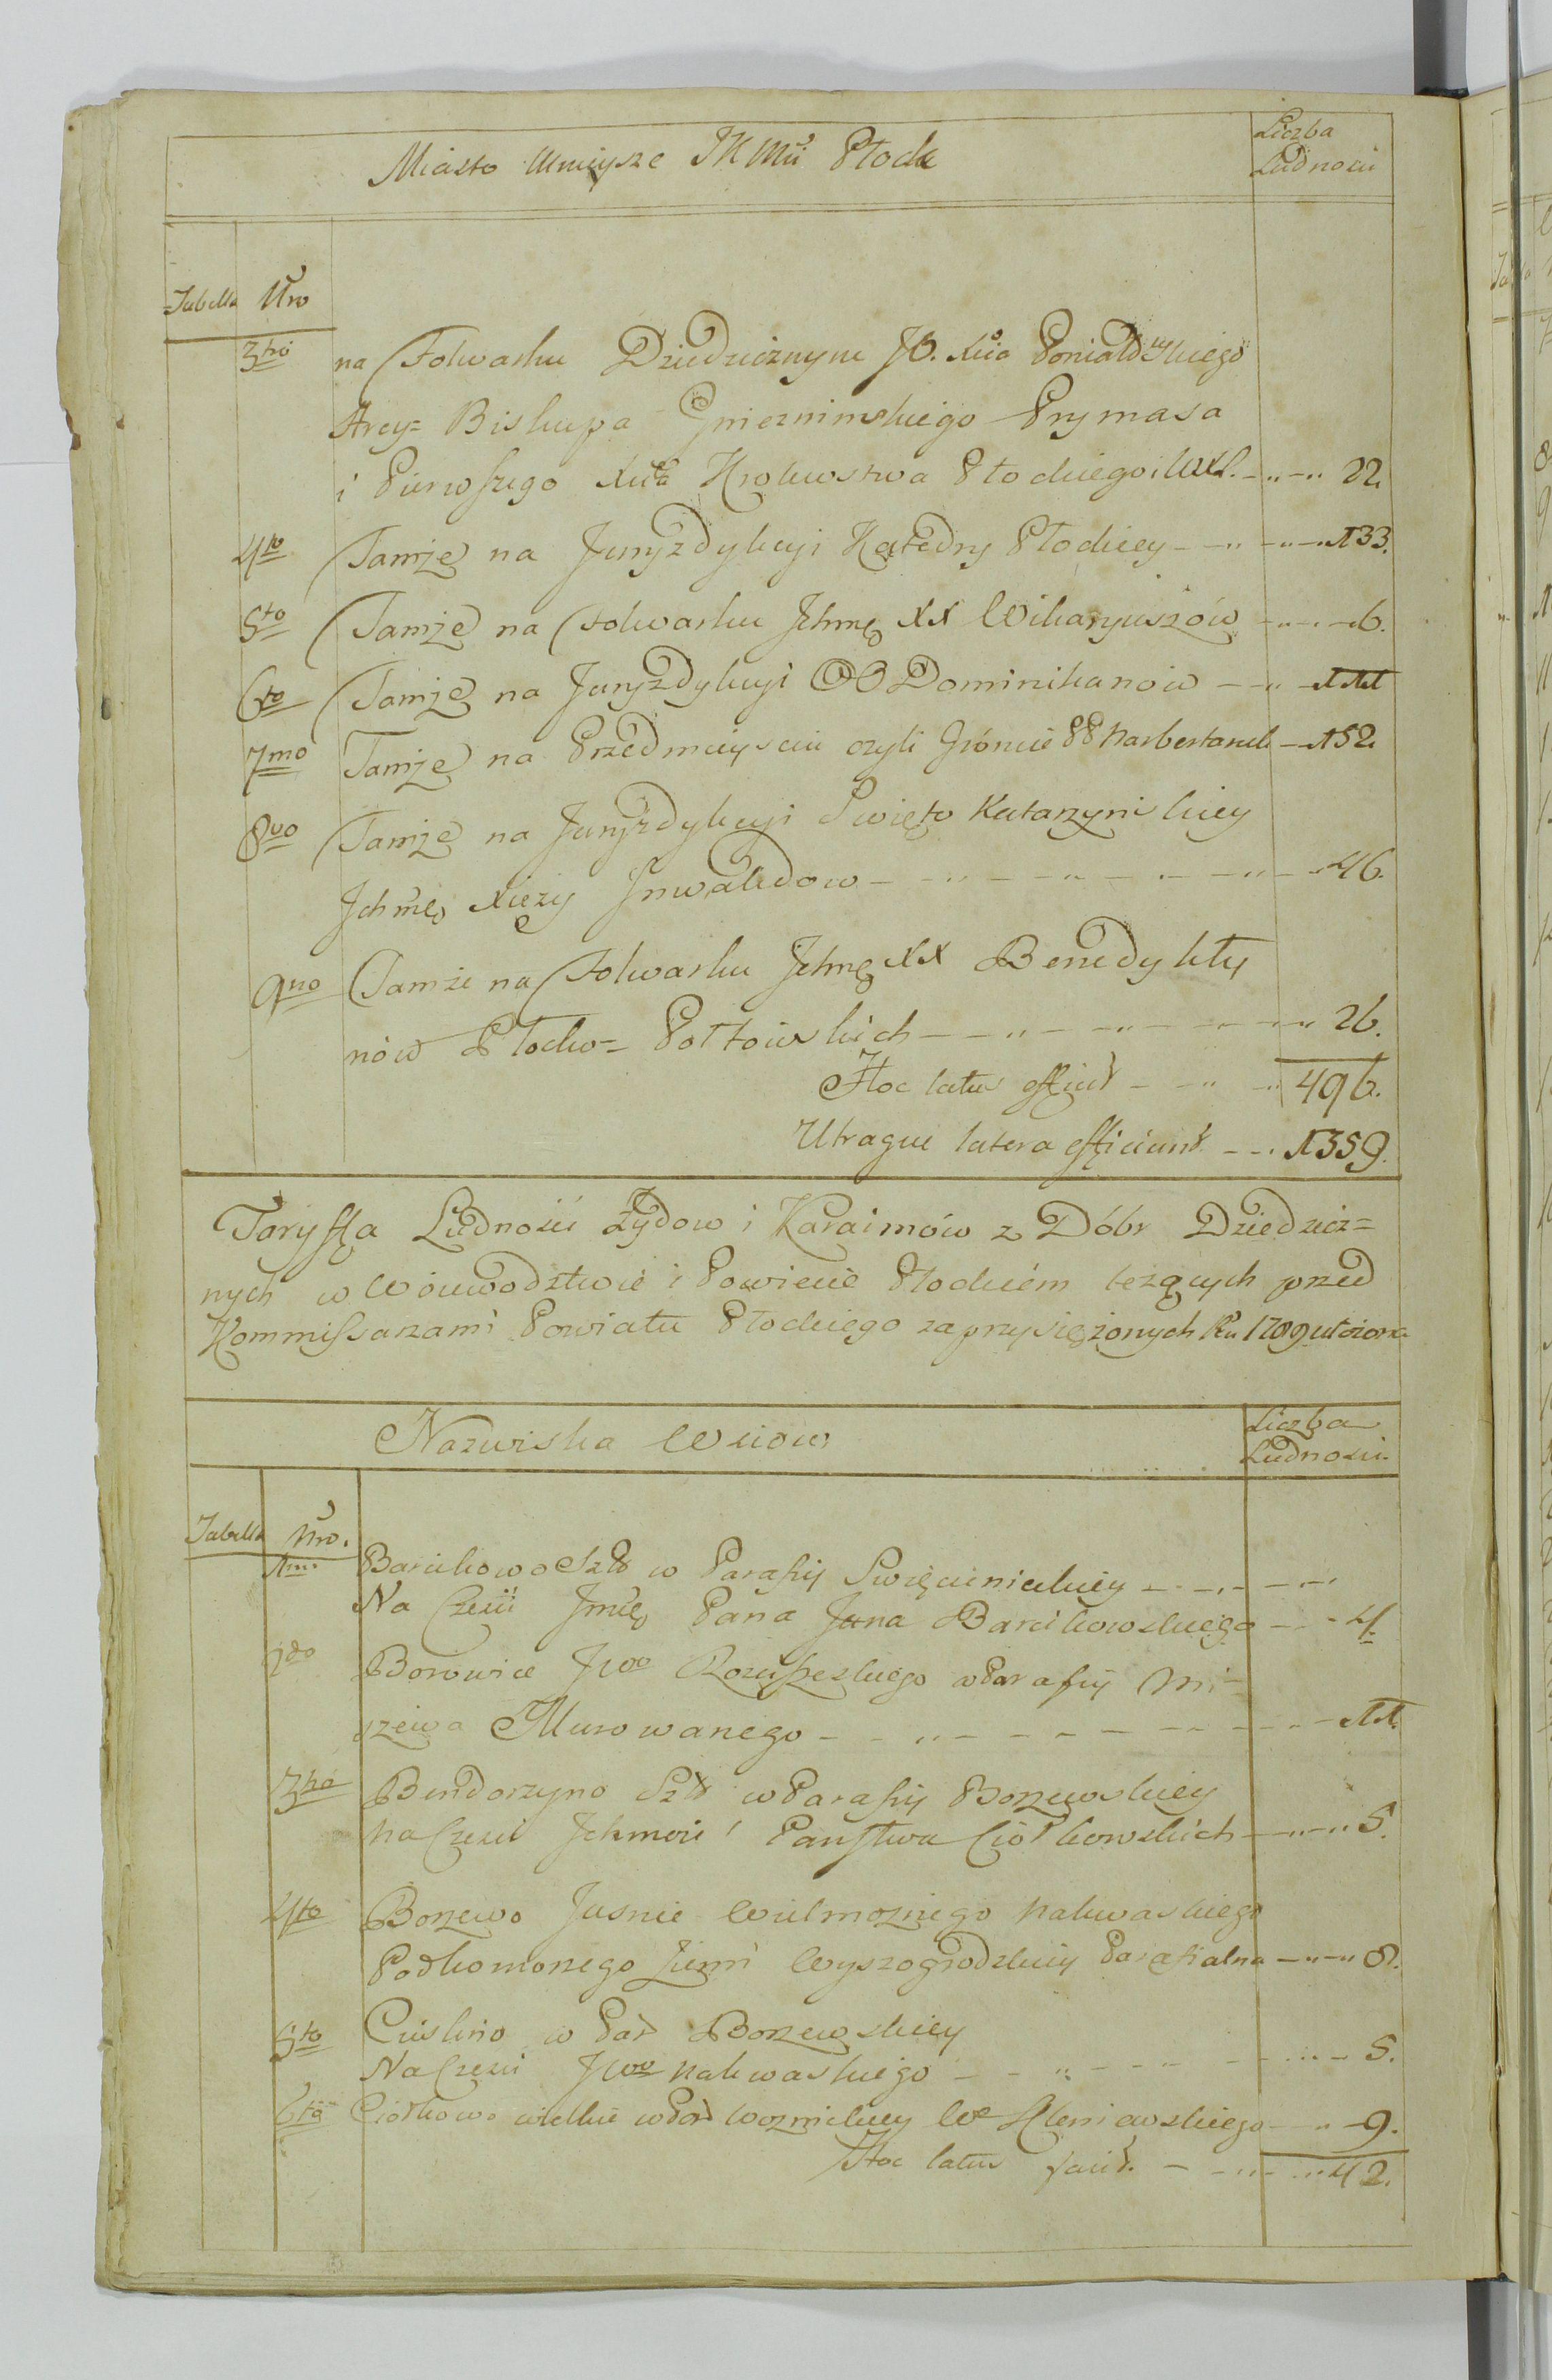 Miasto Mnieysze JKMci Płock
Liczba
Ludnosci
Tabella Nro
3tio na Folwarku Dziedzicznym JO. Xcia Poniatowskiego
Arcy= Biskupa Gniezninskiego Prymasa
i Pierwszego Xcia Krolewstwa Płockiego i WXL. 22.
4to Tamże na Juryzdykcyi Katedry Płockiey 133.
5to Tamże na Folwarku Jchmę XX Wikaryuszów 6.
6to Tamże na Juryzdykcyi OO Dominikanow 111
7mo Tamże na Przedmieysciu czyli Gróncie PP Norbertanek 152.
8vo Tamże na Juryzdykcyi Swięto Katarzyniskiey
Jchmę Xięży Jnwalidow 46.
9no Tamże na Folwarku Jchmę XX Benedykty
nów Płocko= Połtowskich 26.
Hoc latus efficit 496.
Utraque latera efficiunt 1359.
Taryffa Ludnosci Żydow i Karaimów z Dóbr Dziedzicz=
nych w Woiewodztwie i Powiecie Płockiém leżących przed
Kommissarzami Powiatu Płockiego zaprzysiężonych Ru 1789 ułożona
Nazwiska Wsiow
Liczba
Ludnosci.
Tabella Nro.
1mo Barcikowo Szlt w Parafii Swięcienieckiey
Na Częsci Jmę Pana Jana Barcikowskiego 4.
2do Borowice JWo Rosciszeskiego w Parafii Mi-
szewa Murowanego 11.
3tio Bendorzyno Szlt w Parafii Bozewskiey
Na Częsci Jchmosć Państwa Ciołkowskich 5.
4to Bozewo Jasnie Wielmoznego Nakwaskiego
Podkomorzego Ziemi Wyszogrodzkiey Parafialna 8.
5to Cieslino w Par Bozewskiey
Na Częsci JWo Nakwaskiego 5.
6to Ciółkowo wielkie w Par Woznickiey We Kleniewskiego 9.
Hoc latus facit. 42.